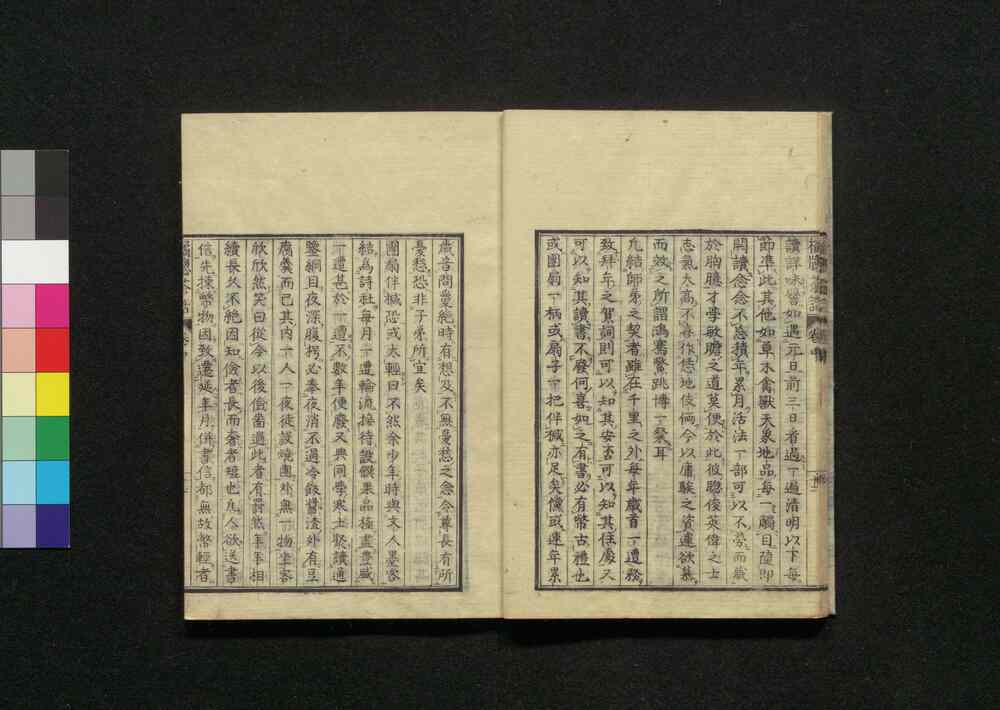 讀詳味譬如遇元日前三日看過一過清明以下每
節準此其他如草木禽獸天象地品每一觸目隨即
開讀念念不忘積年累月活法一部可以不
於胸臆才學敏贍之道莫便於此彼聰俊英偉之士
志氣太高不喜作恁地伎倆今以庸騃之資遽欲慕
而效之所謂鴻鶱鷩跳博一粲耳
凡結師弟之契者雖在千里之外每年歲首一遭務
致拜年之賀詞則可以知其安否可以知其住處又
可以知其讀書不廢何喜如之有書必有幣古禮也
或團扇一柄或扇子一把伴椷亦足矣儻或連年累
歲音問棄絶時有想及不無憂愁之念令尊長有所
憂愁恐非子弟所宜矣
團扇伴椷恐或太輕曰不然余少年時與文人墨客
結爲詩社每月一遭輪流接待設骰果品極盡豊盛
一遭甚於一遭不數年便廢又與同學寒士聚讀通
鑒綱目夜深腹枵必奉夜消不過冷飯醬漬外有豆
腐羹而已其内一人一夜徒設燒鹵外無一物坐客
欣欣然笑曰從今以後衙啚過此者有罰然年年相
續長久不絶因知儉者長而奢者短也 今欲送書
信先揀幣物因致遷延年月併書信都無故幣輕者